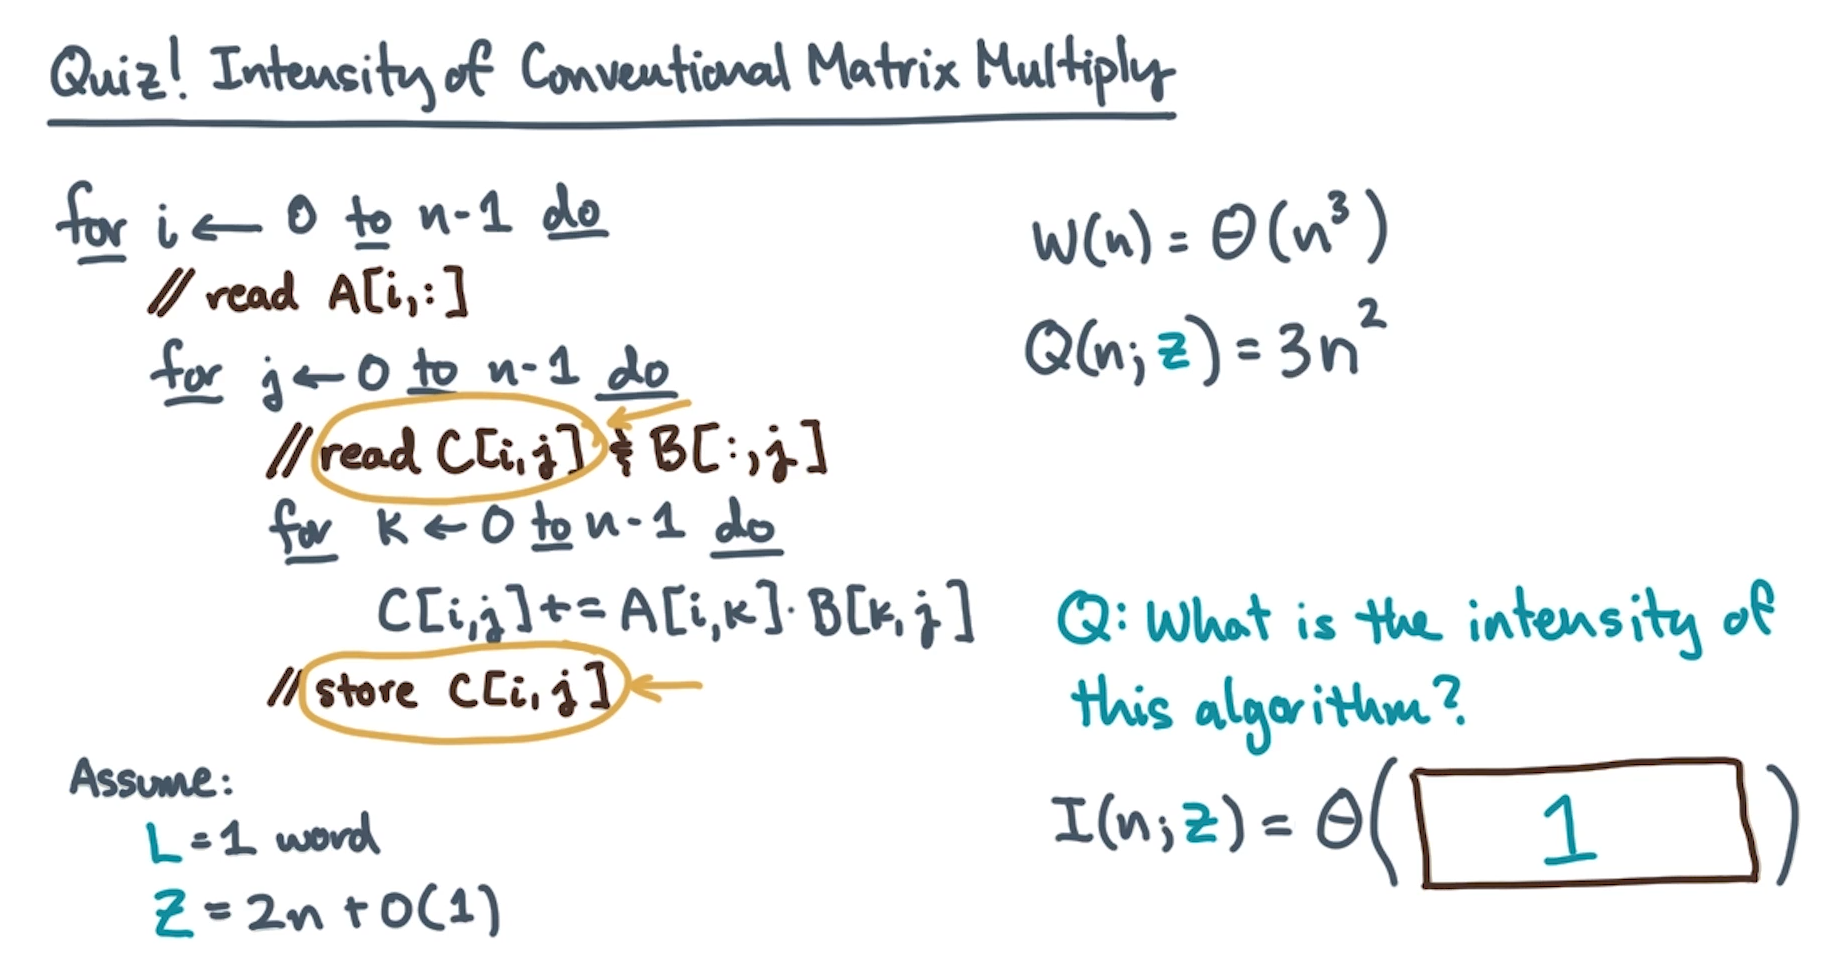 Quiz! Intensity of Conventional Matrix Multiply
for i ← 0 to n-1 do
// read A[i,:]
for j ← 0 to n-1 do
// read C[i,j] & B[:,j]
for k ← 0 to n-1 do
C[i,j] += A[i,k] · B[k,j]
// store C[i,j]
Assume:
L = 1 word
Z = 2n + O(1)
W(n) = Θ(n³)
Q(n; Z) = 3n²
Q: What is the intensity of
this algorithm?
I(n; Z) = Θ( 1 )